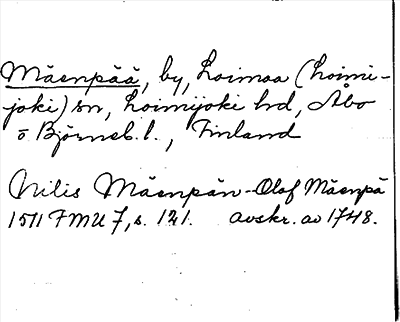 Mäenpää, by, Loimaa (Loimi-
joki) sn, Loimijoki hd, Åbo
o Björneb. l., Finland
Nilis Mäenpän-Olof Mäenpä
1511 FMU 7, s. 121. avskr. av 1748.